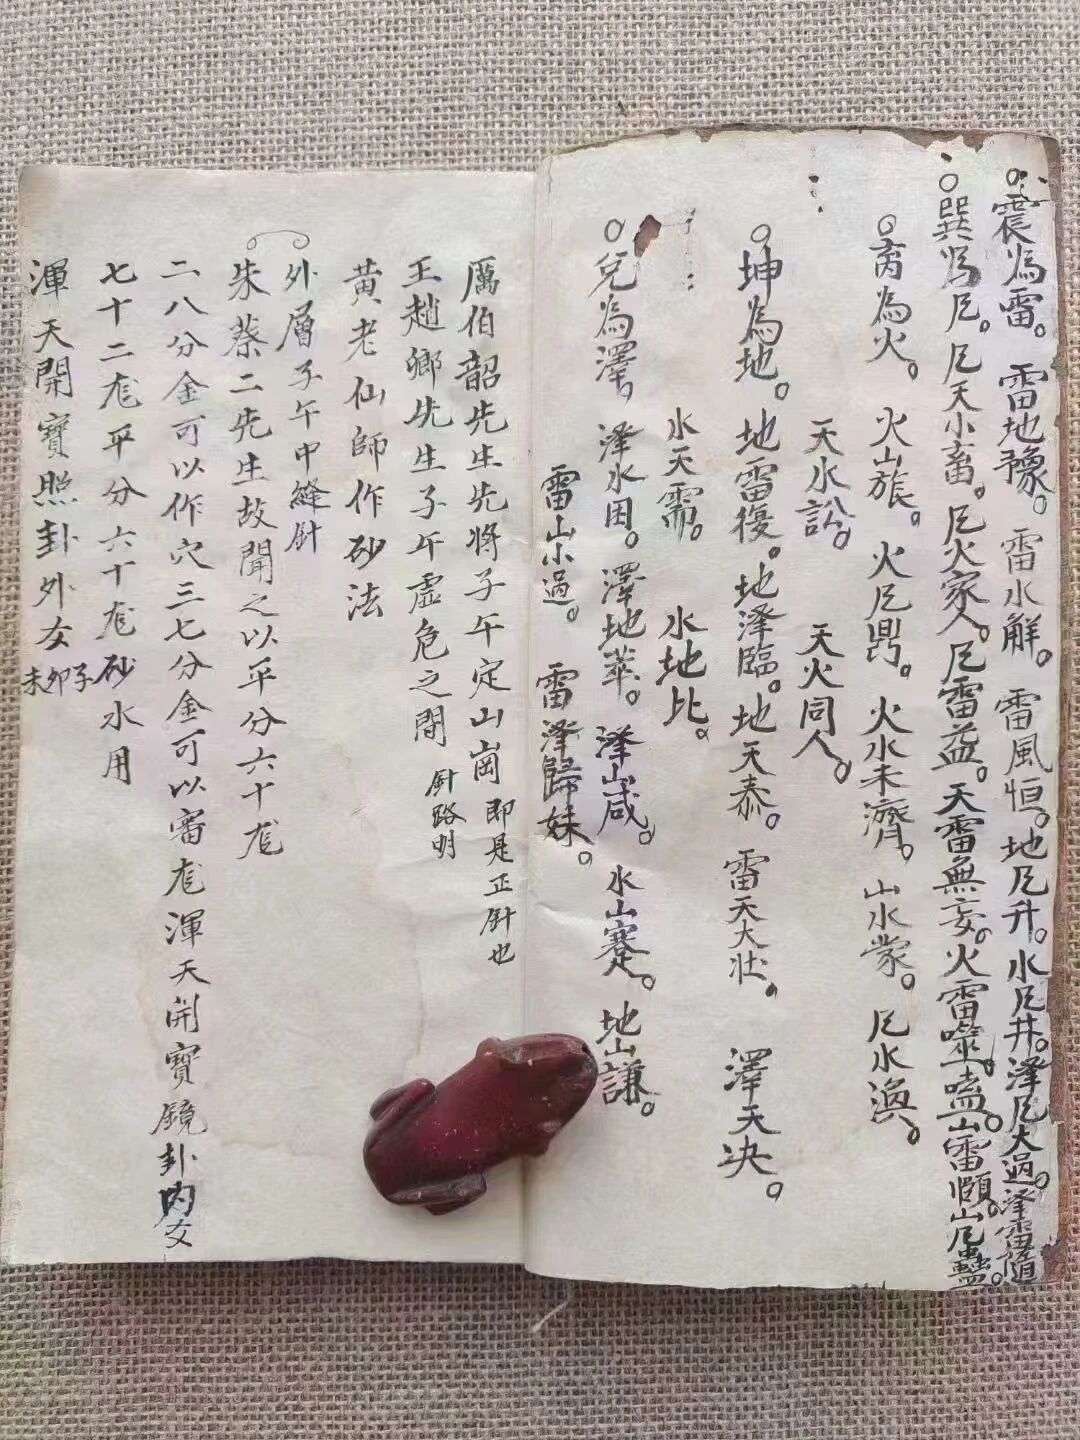 震為雷。雷地豫。雷水解。雷風恒。地㞢升。水㞢井。澤㞢大過。澤雷隨。
巽為㞢。㞢天小畜。㞢火家人。㞢雷益。天雷無妄。火雷噬嗑。山雷頤。山㞢蠱。
离為火。火山旅。火㞢鼎。火水未濟。山水蒙。㞢水渙。
天水訟。天火同人。
坤為地。地雷復。地澤臨。地天泰。雷天大壯。澤天决。
水天需。水地比。
兌為澤。澤水困。澤地萃。澤山咸。水山蹇。地山謙。
雷山小過。雷澤歸妹。
厲伯韶先生先將子午定山崗即是正針也
王趙鄉先生子午虛危之間針路明
黃老仙師作砂法
外層子午中縫針
朱蔡二先生故聞之以平分六十尨
二八分金可以作穴三七分金可以審尨渾天開寶鏡卦內女
七十二尨平分六十尨砂水用
渾天開寶照卦外女子卯未